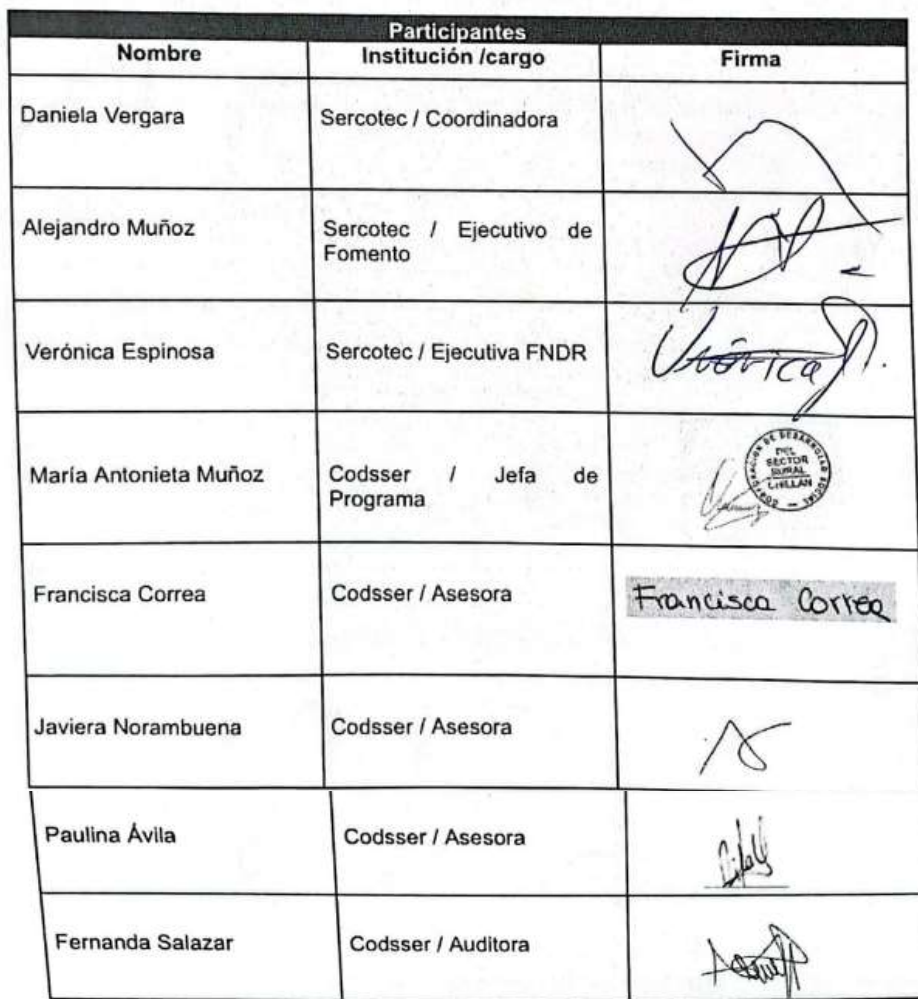 Participantes
Nombre Institución /cargo Firma
Daniela Vergara Sercotec / Coordinadora
Alejandro Muñoz Sercotec / Ejecutivo de
Fomento
Verónica Espinosa Sercotec / Ejecutiva FNDR Verónica
María Antonieta Muñoz Codsser / Jefa de
Programa
CORPORACIÓN DE DESARROLLO SOCIAL
DEL
SECTOR
RURAL
CHILLAN
Francisca Correa Codsser / Asesora Francisca Correa
Javiera Norambuena Codsser / Asesora
Paulina Ávila Codsser / Asesora
Fernanda Salazar Codsser / Auditora